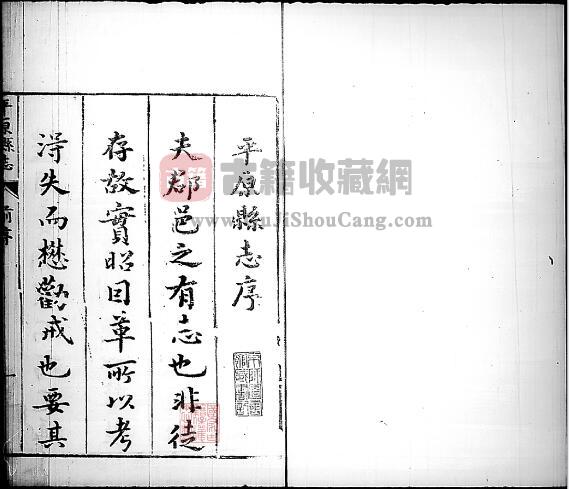 平原縣志序
夫郡邑之有志也非徒
存故實昭因革所以考
得失而懋勸戒也要其
平原縣志
前序
古籍收藏网
www.GuJiShouCang.com